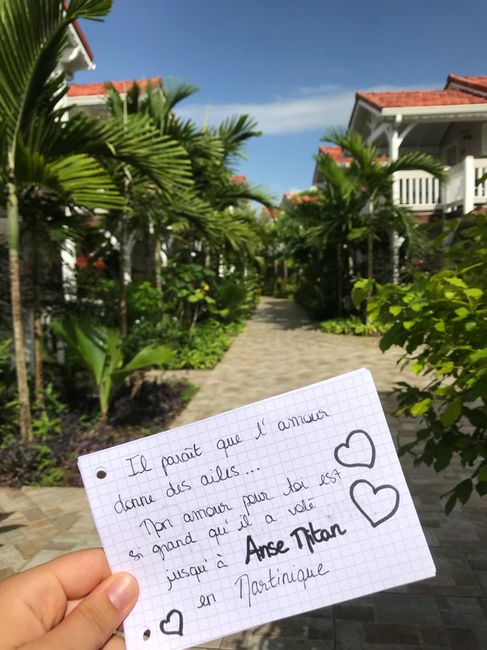 Il paraît que l'amour
donne des ailes...
Mon amour pour toi est
si grand qu'il a volé
jusqu'à Anse Mitan
en Martinique